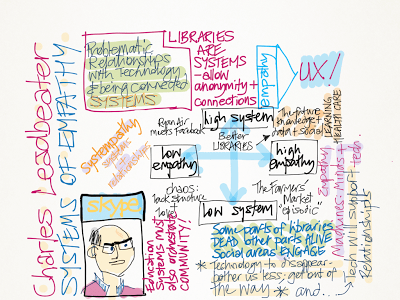 Charles Leadbeater
SYSTEMS OF EMPATHY
Problematic
Relationships
with Technology
& being connected
SYSTEMS
LIBRARIES
ARE
SYSTEMS
-allow
anonymity +
connections
empathy
UX/
Ryan Air
meets Facebook
high system
Better
LIBRARIES
The future
knowledge +
data + social
LEARNING
HEALTHCARE
Systempathy
systemic
relationships
low
empathy
high
empathy
chaos:
lack structure
low system
The Farmers'
Market
"episodic"
Empathy
Machines-Minds-tech
Tech will support
relationships
skype
Education
Systems must
also orchestrate
COMMUNITY!
Some parts of libraries
DEAD other parts ALIVE
Social areas ENGAGE
* Technology to disappear-
bother us less-get out of
the way * and...